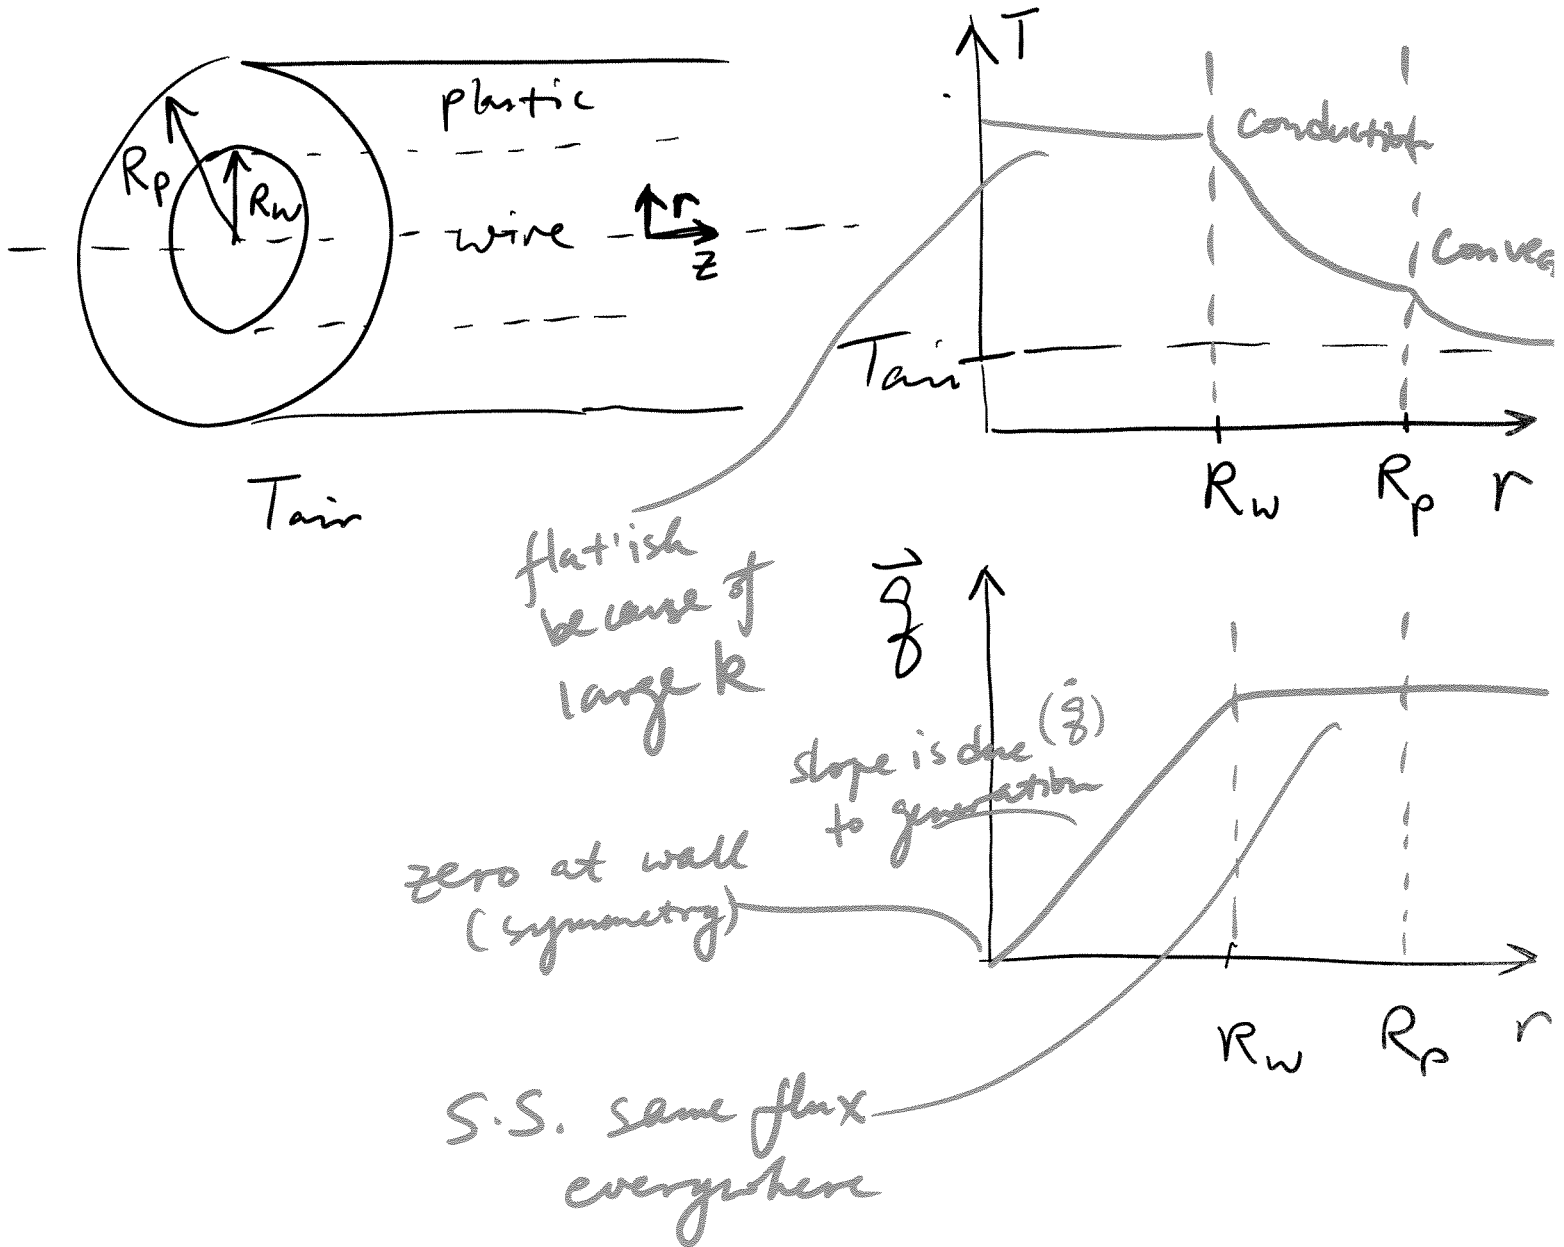 plastic
Rp
Rw
wire
r
z
Tair
T
conduction
Tair
Rw
Rp
r
flat'ish
because of
large k
q
slope is due (q̇)
to generation
zero at wall
(symmetry)
Rw
Rp
r
S.S. same flux
everywhere